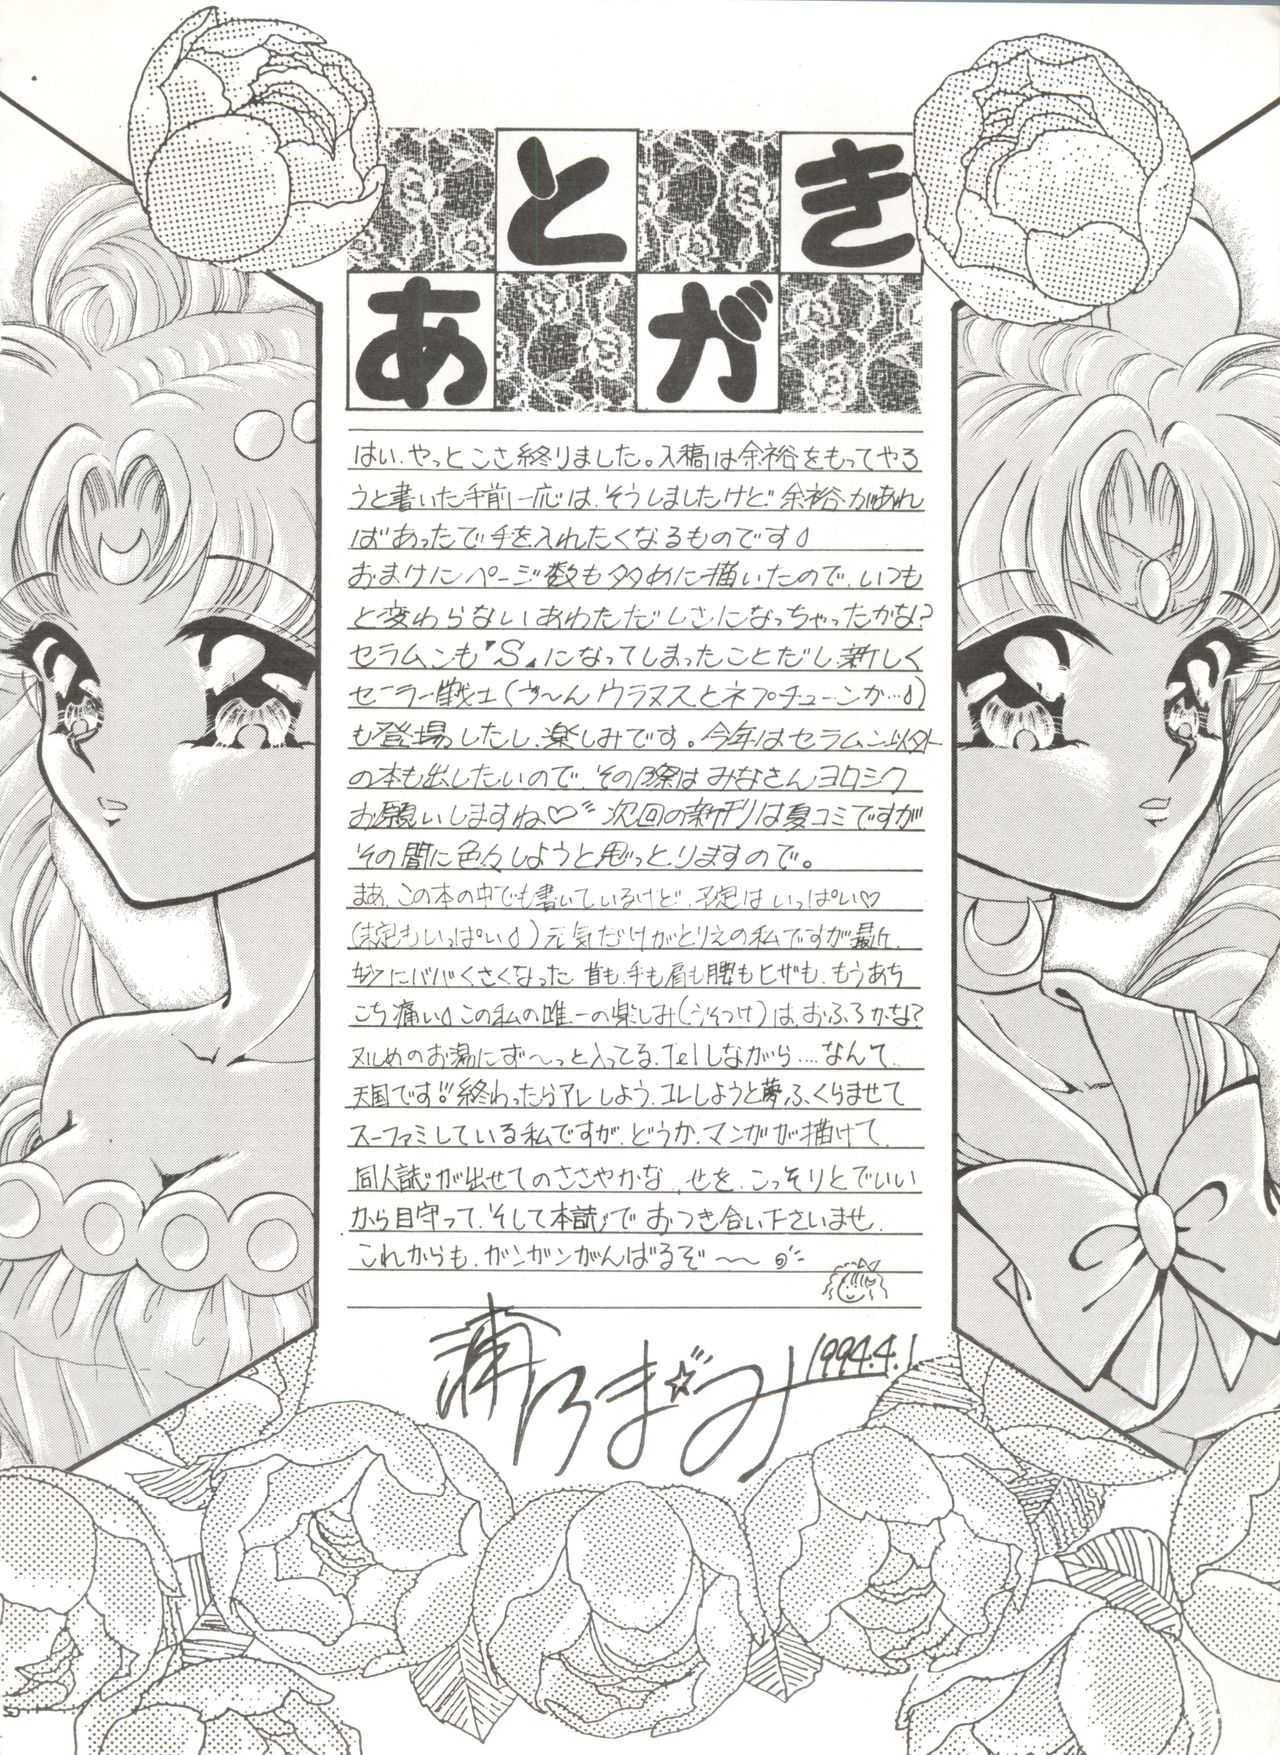 あとがき
はい、やっとこさ終りました。入稿は余裕をもってやろ
うと書いた手前一応は、そうしましたけど、余裕があれ
ばあったで手を入れたくなるものです♪
おまけにページ数も多めに描いたので、いつも
と変わらないあわただしさになっちゃったかな?
セラムンも『S』になってしまったことだし、新しく
セーラー戦士(う〜んウラヌスとネプチューンか…♪)
も登場したし、楽しみです。今年はセラムン以外
の本も出したいので、その際はみなさんヨロシク
お願いしますね♡ 次回の新刊は夏コミですが
その間に色々しようと思っとりますので。
まあ、この本の中でも書いているけど、予定はいっぱい♡
(未定もいっぱい♪)元気だけがとりえの私ですが最近、
にババくさくなった 首も、手も肩も腰もヒザも、もうあち
こち痛い♪この私の唯一の楽しみ(うそつけ)は、おふろかな?
ヌルめのお湯にず〜っと入ってる、Telしながら….なんて、
天国です!! 終わったらアレしよう、コレしようと夢ふくらませて
スーファミしている私ですが、どうか、マンガが描けて、
同人誌が出せてのささやかな、せを、こっそりとでいい
から目守って、そして本誌でおつき合い下さいませ、
これからも、ガンガンがんばるぞ〜〜
1994.4.1